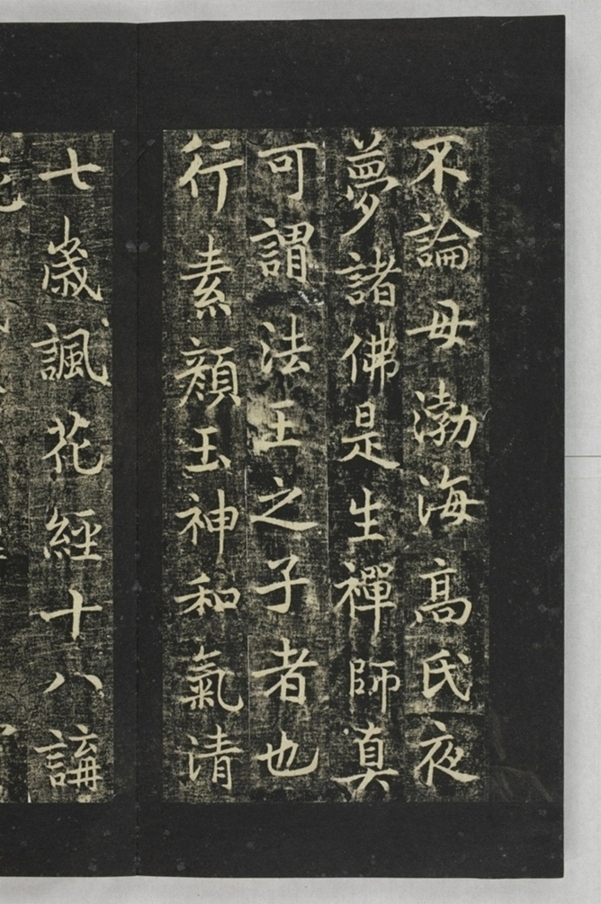 不論母渤海高氏夜
夢諸佛是生禪師真
可謂法王之子者也
行素顏玉神和氣清
七歲諷花經十八講